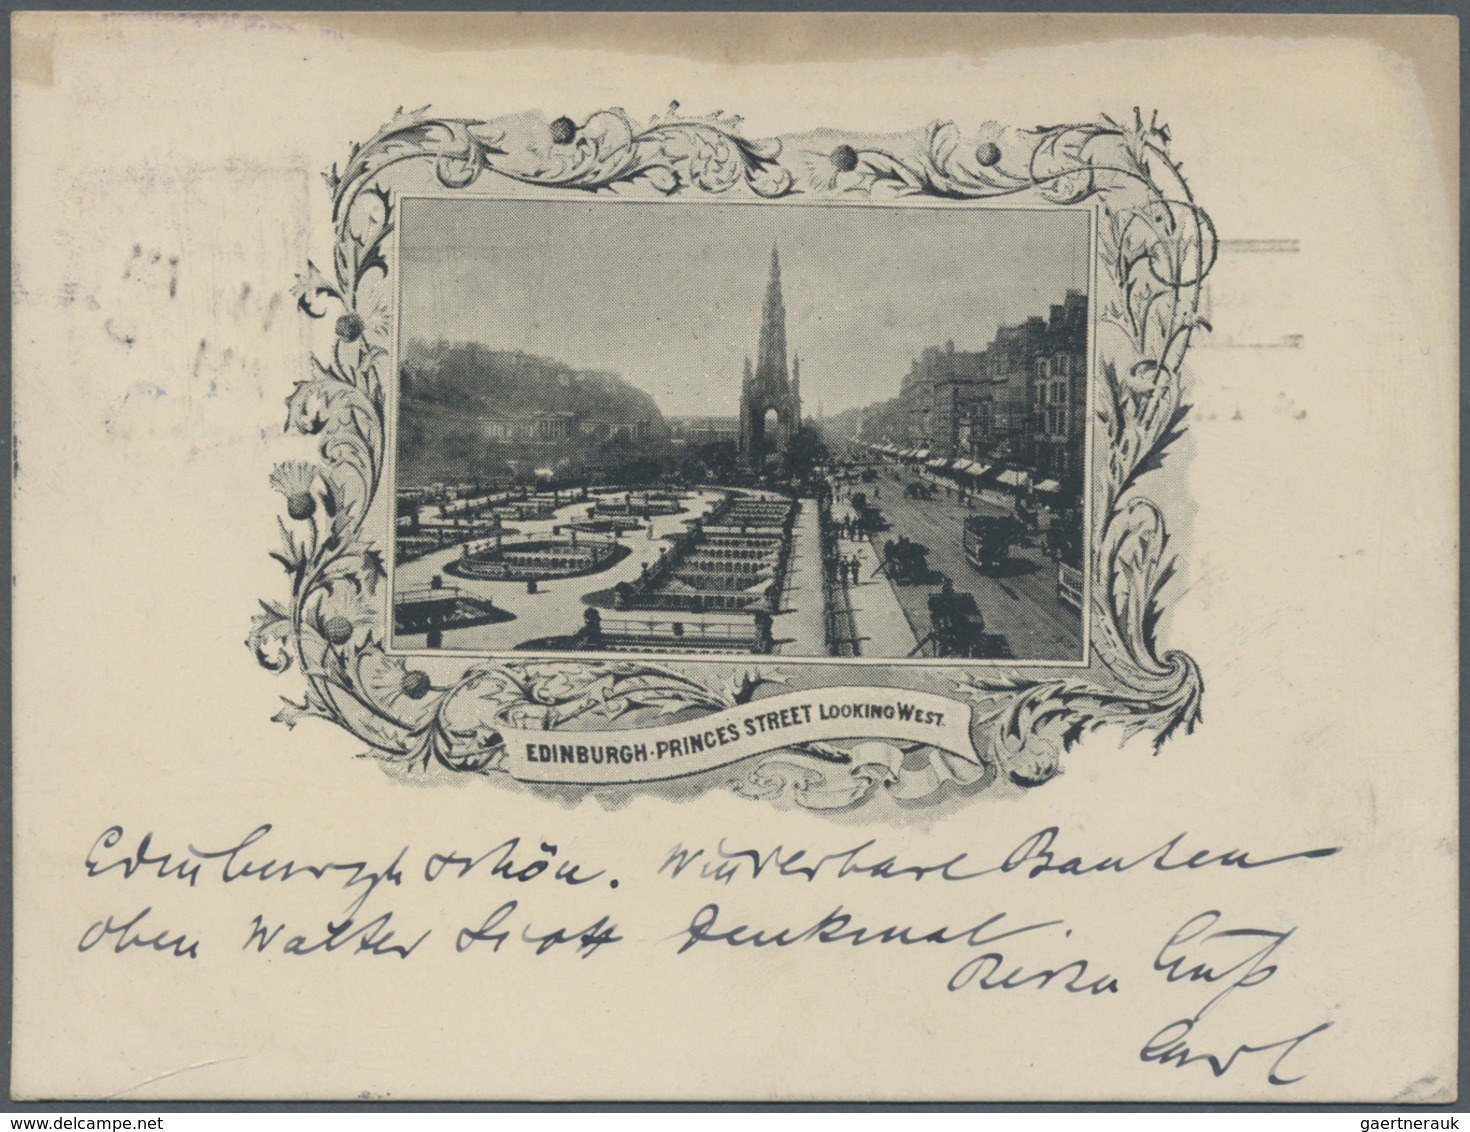 EDINBURGH · PRINCES STREET LOOKING WEST.
Edinburgh schön. Wunderbare Bauten
oben Walter Scott Denkmal.
Gruß
Carl
gaertnerauk@delcampe.net